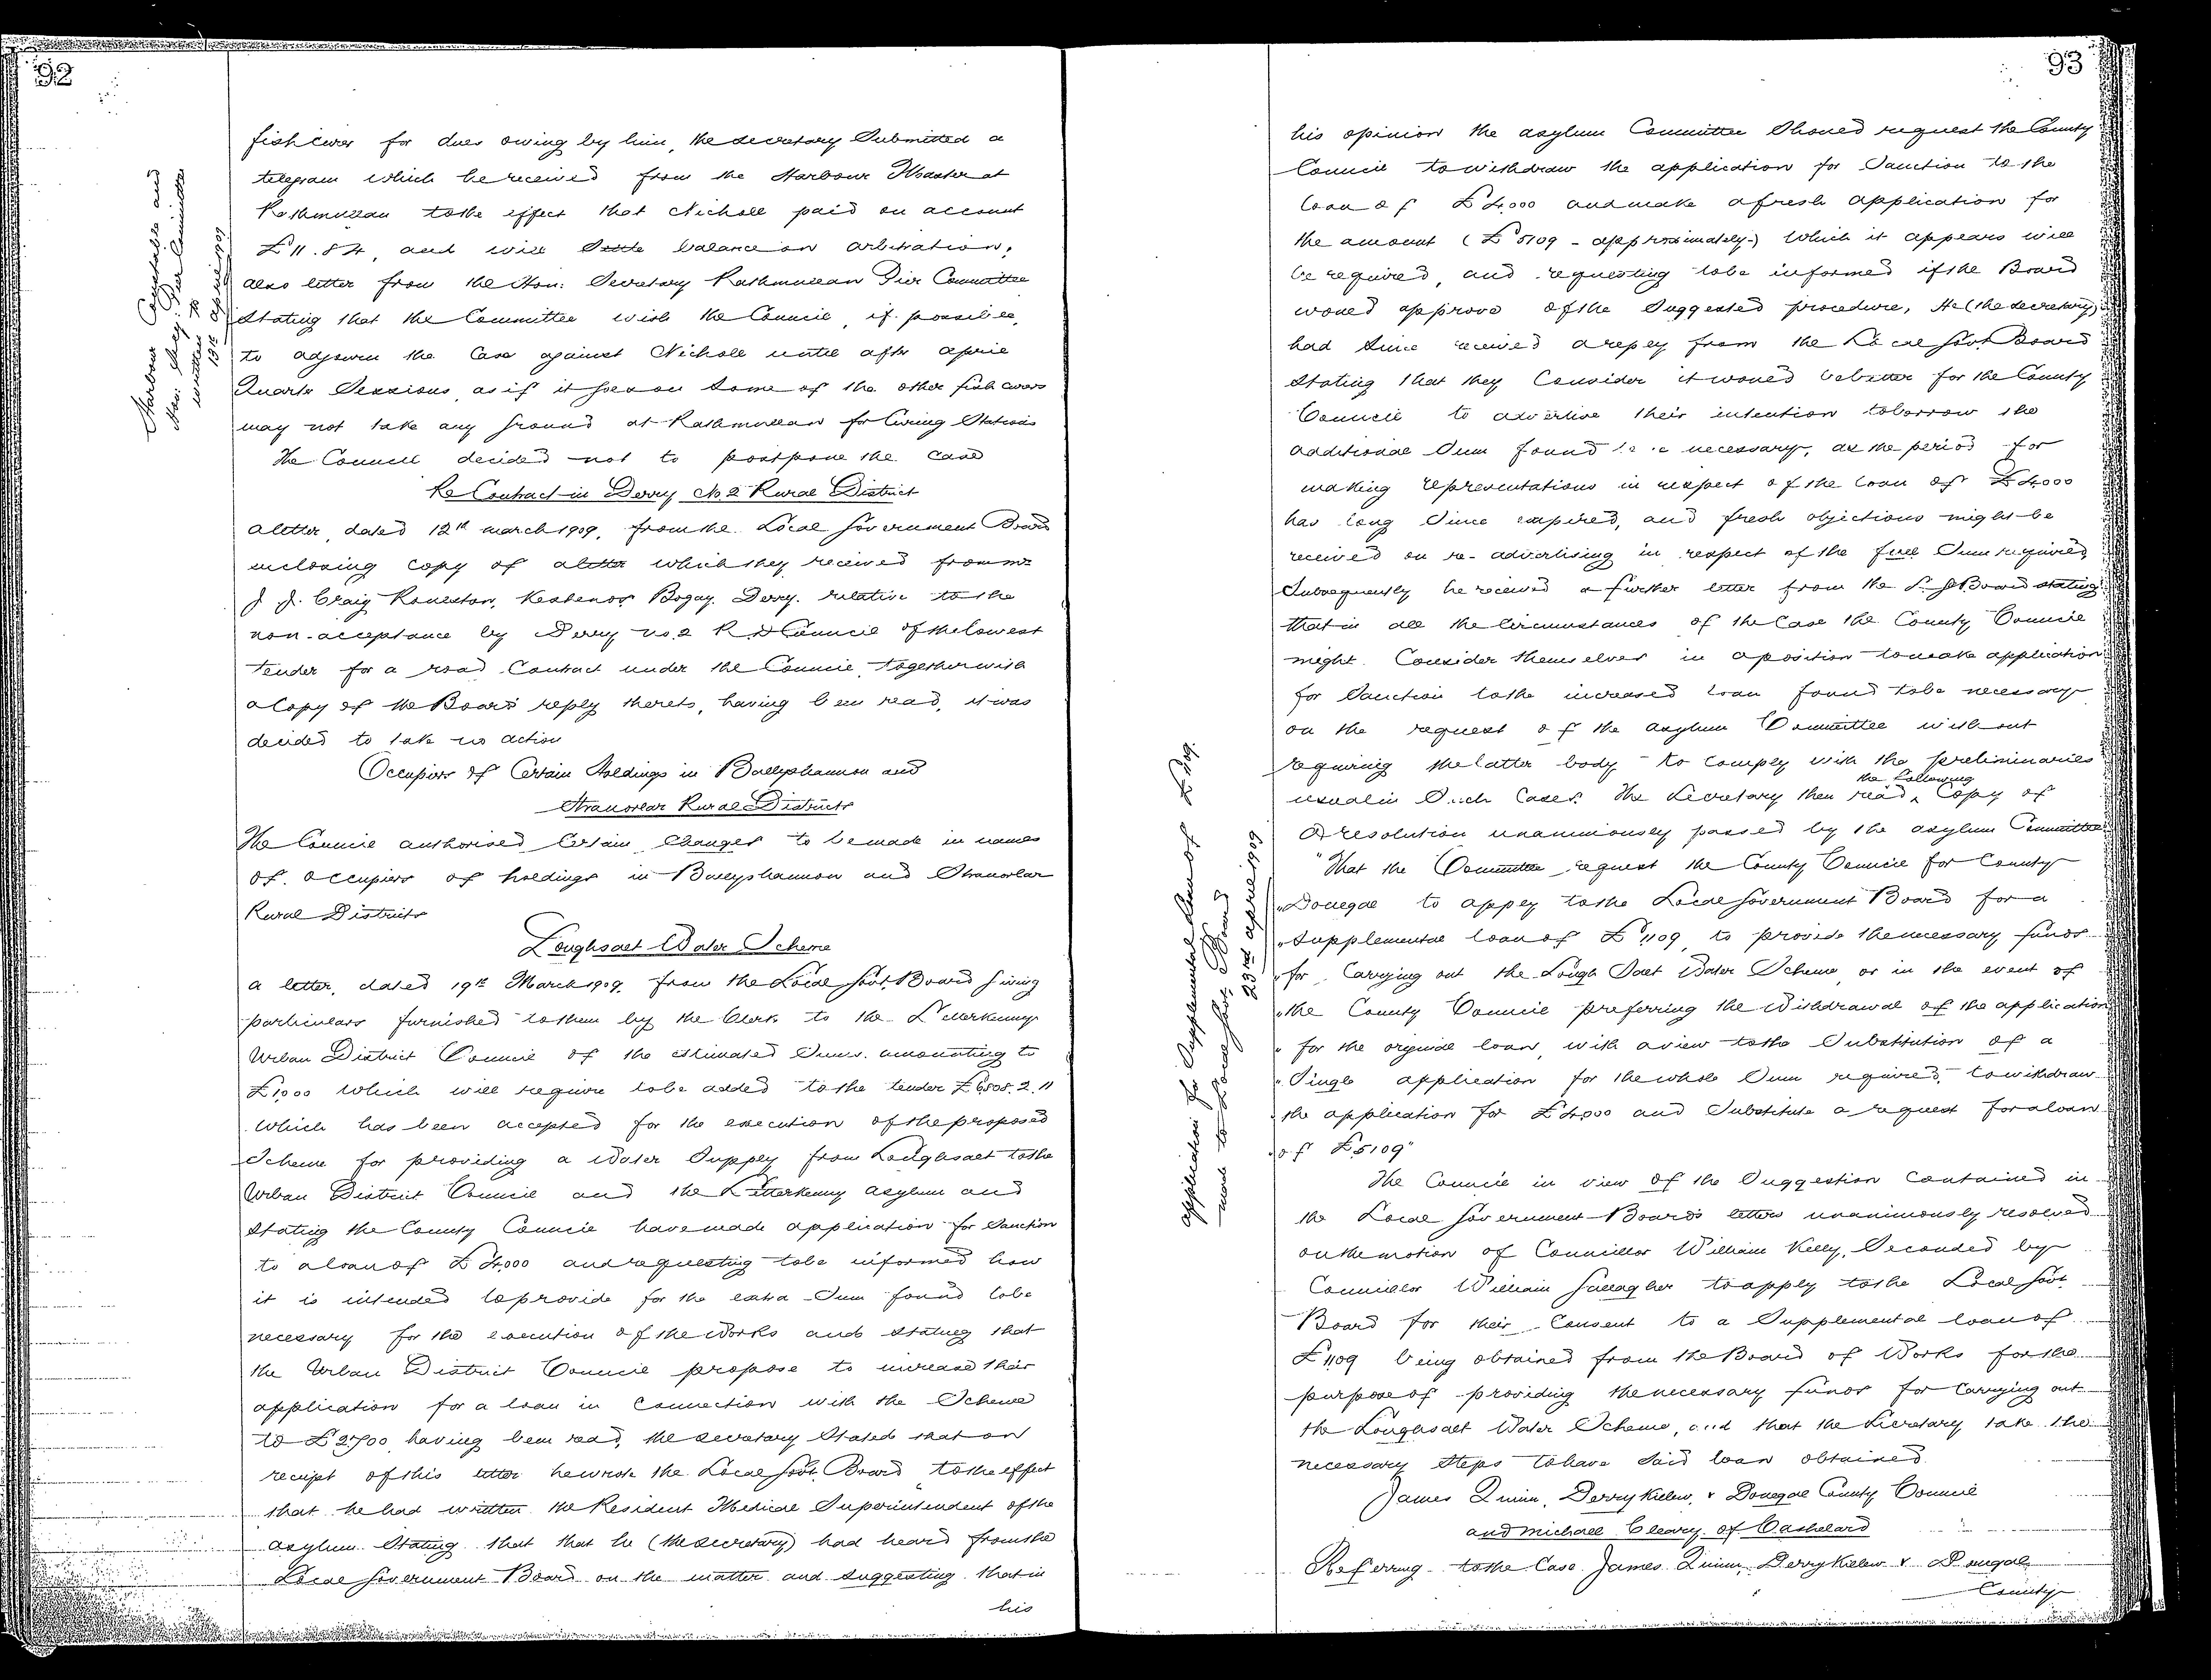 92
Harbour Constable and
Hon: Secy. Pier Committee
written to
15th April 1909
fish curer for dues owing by him, the secretary Submitted a
telegram which he received from the Harbour Master at
Rathmullan to the effect that Nicholl paid on account
£11.8.4, and will Settle balance on arbitration,
also letter from the Hon: Secretary Rathmullan Pier Committee
Stating that the Committee wish the Council, if possible,
to adjourn the Case against Nicholl until after April
Quarter Sessions, as if it goes on Some of the other fish curers
may not take any ground at Rathmullan for Curing Stations
The Council decided not to postpone the case
Re Contract in Derry No 2 Rural District
A letter, dated 12th March 1909, from the Local Government Board
inclosing copy of a letter which they received from Mr
J. J. Craig Bogay. Derry. relative to the
non-acceptance by Derry No. 2 R D Council of the lowest
tender for a road Contract under the Council, together with
a Copy of the Board's reply thereto, having been read, it was
decided to take no action
Occupiers of Certain Holdings in Ballyshannon and
Stranorlar Rural Districts
The Council authorised Certain Changes to be made in names
of occupiers of holdings in Ballyshannon and Stranorlar
Rural Districts
Loughsalt Water Scheme
A letter, dated 19th March 1909, from the Local Govt. Board giving
particulars furnished to them by the Clerk to the Letterkenny
Urban District Council of the estimated Sums amounting to
£1,000 which will require to be added to the tender £6808.2.11
which has been accepted for the execution of the proposed
Scheme for providing a Water Supply from Loughsalt to the
Urban District Council and the Letterkenny Asylum and
Stating the County Council have made application for Sanction
to a loan of £4,000 and requesting to be informed how
it is intended to provide for the extra Sum found to be
necessary for the execution of the Works and Stating that
the Urban District Council propose to increase their
application for a loan in Connection with the Scheme
to £2700, having been read, the secretary Stated that on
receipt of this letter he wrote the Local Govt. Board to the effect
that he had written the Resident Medical Superintendent of the
asylum Stating that that he (the secretary) had heard from the
Local Government Board on the matter and suggesting that in
his
93
Application for Supplemental Loan of £1109.
made to Local Govt. Board
23rd April 1909
his opinion the asylum Committee Should request the County
Council to withdraw the application for Sanction to the
loan of £4,000 and make a fresh application for
the amount (£5109 - approximately) Which it appears will
be required, and requesting to be informed if the Board
would approve of the Suggested procedure, He (the secretary)
had Since received a reply from the Local Govt. Board
Stating that they Consider it would be better for the County
Council to advertise their intention to borrow the
additional Sum found to be necessary, as the period for
making representations in respect of the loan of £4000
has long Since expired, and fresh objections might be
received on re-advertising in respect of the full Sum required
Subsequently he received a further letter from the L. G. Board stating
that in all the Circumstances of the Case the County Council
might Consider themselves in a position to make application
for Sanction to the increased loan found to be necessary
on the request of the Asylum Committee without
requiring the latter body to Comply with the preliminaries
usual in Such Cases. The Secretary then read the following Copy of
a resolution unanimously passed by the Asylum Committee
"That the Committee request the County Council for County
"Donegal to apply to the Local Government Board for a
"Supplemental loan of £1,109 to provide the necessary funds
"for Carrying out the Lough Salt Water Scheme, or in the event of
"the County Council preferring the Withdrawal of the application
"for the original loan, with a view to the Substitution of a
"Single application for the whole Sum required, to withdraw
"the application for £4,000 and Substitute a request for a loan
"of £5109"
The Council in view of the Suggestion Contained in
the Local Government Board's letters unanimously resolved
on the motion of Councillor William Kelly, Seconded by
Councillor William Gallagher to apply to the Local Govt.
Board for their Consent to a Supplemental loan of
£1,109 being obtained from the Board of Works for the
purpose of providing the necessary funds for Carrying out
the Loughsalt Water Scheme, and that the Secretary take the
necessary Steps to have Said loan obtained
James Quinn, Derrykillew, v Donegal County Council
and Michael Cleary of Cashelard
Referring to the Case James Quinn, Derrykillew v Donegal
County